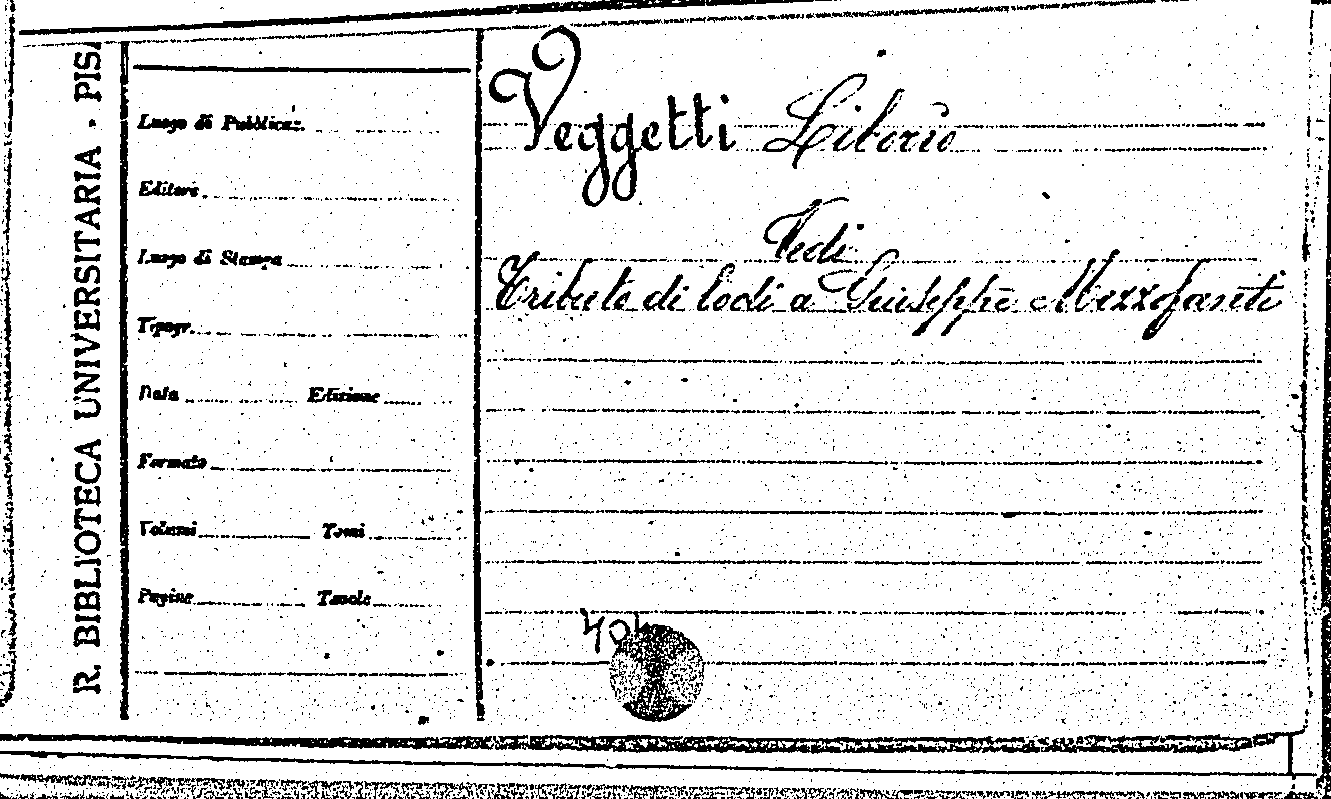 R. BIBLIOTECA UNIVERSITARIA - PISA
Luogo di Pubblicaz.
Editore
Luogo di Stampa
Tipogr.
Data Edizione
Formato
Volumi Tomi
Pagine Tavole
Veggetti Liborio
Vedi
Tributo di lodi a Giuseppe Mezzofanti